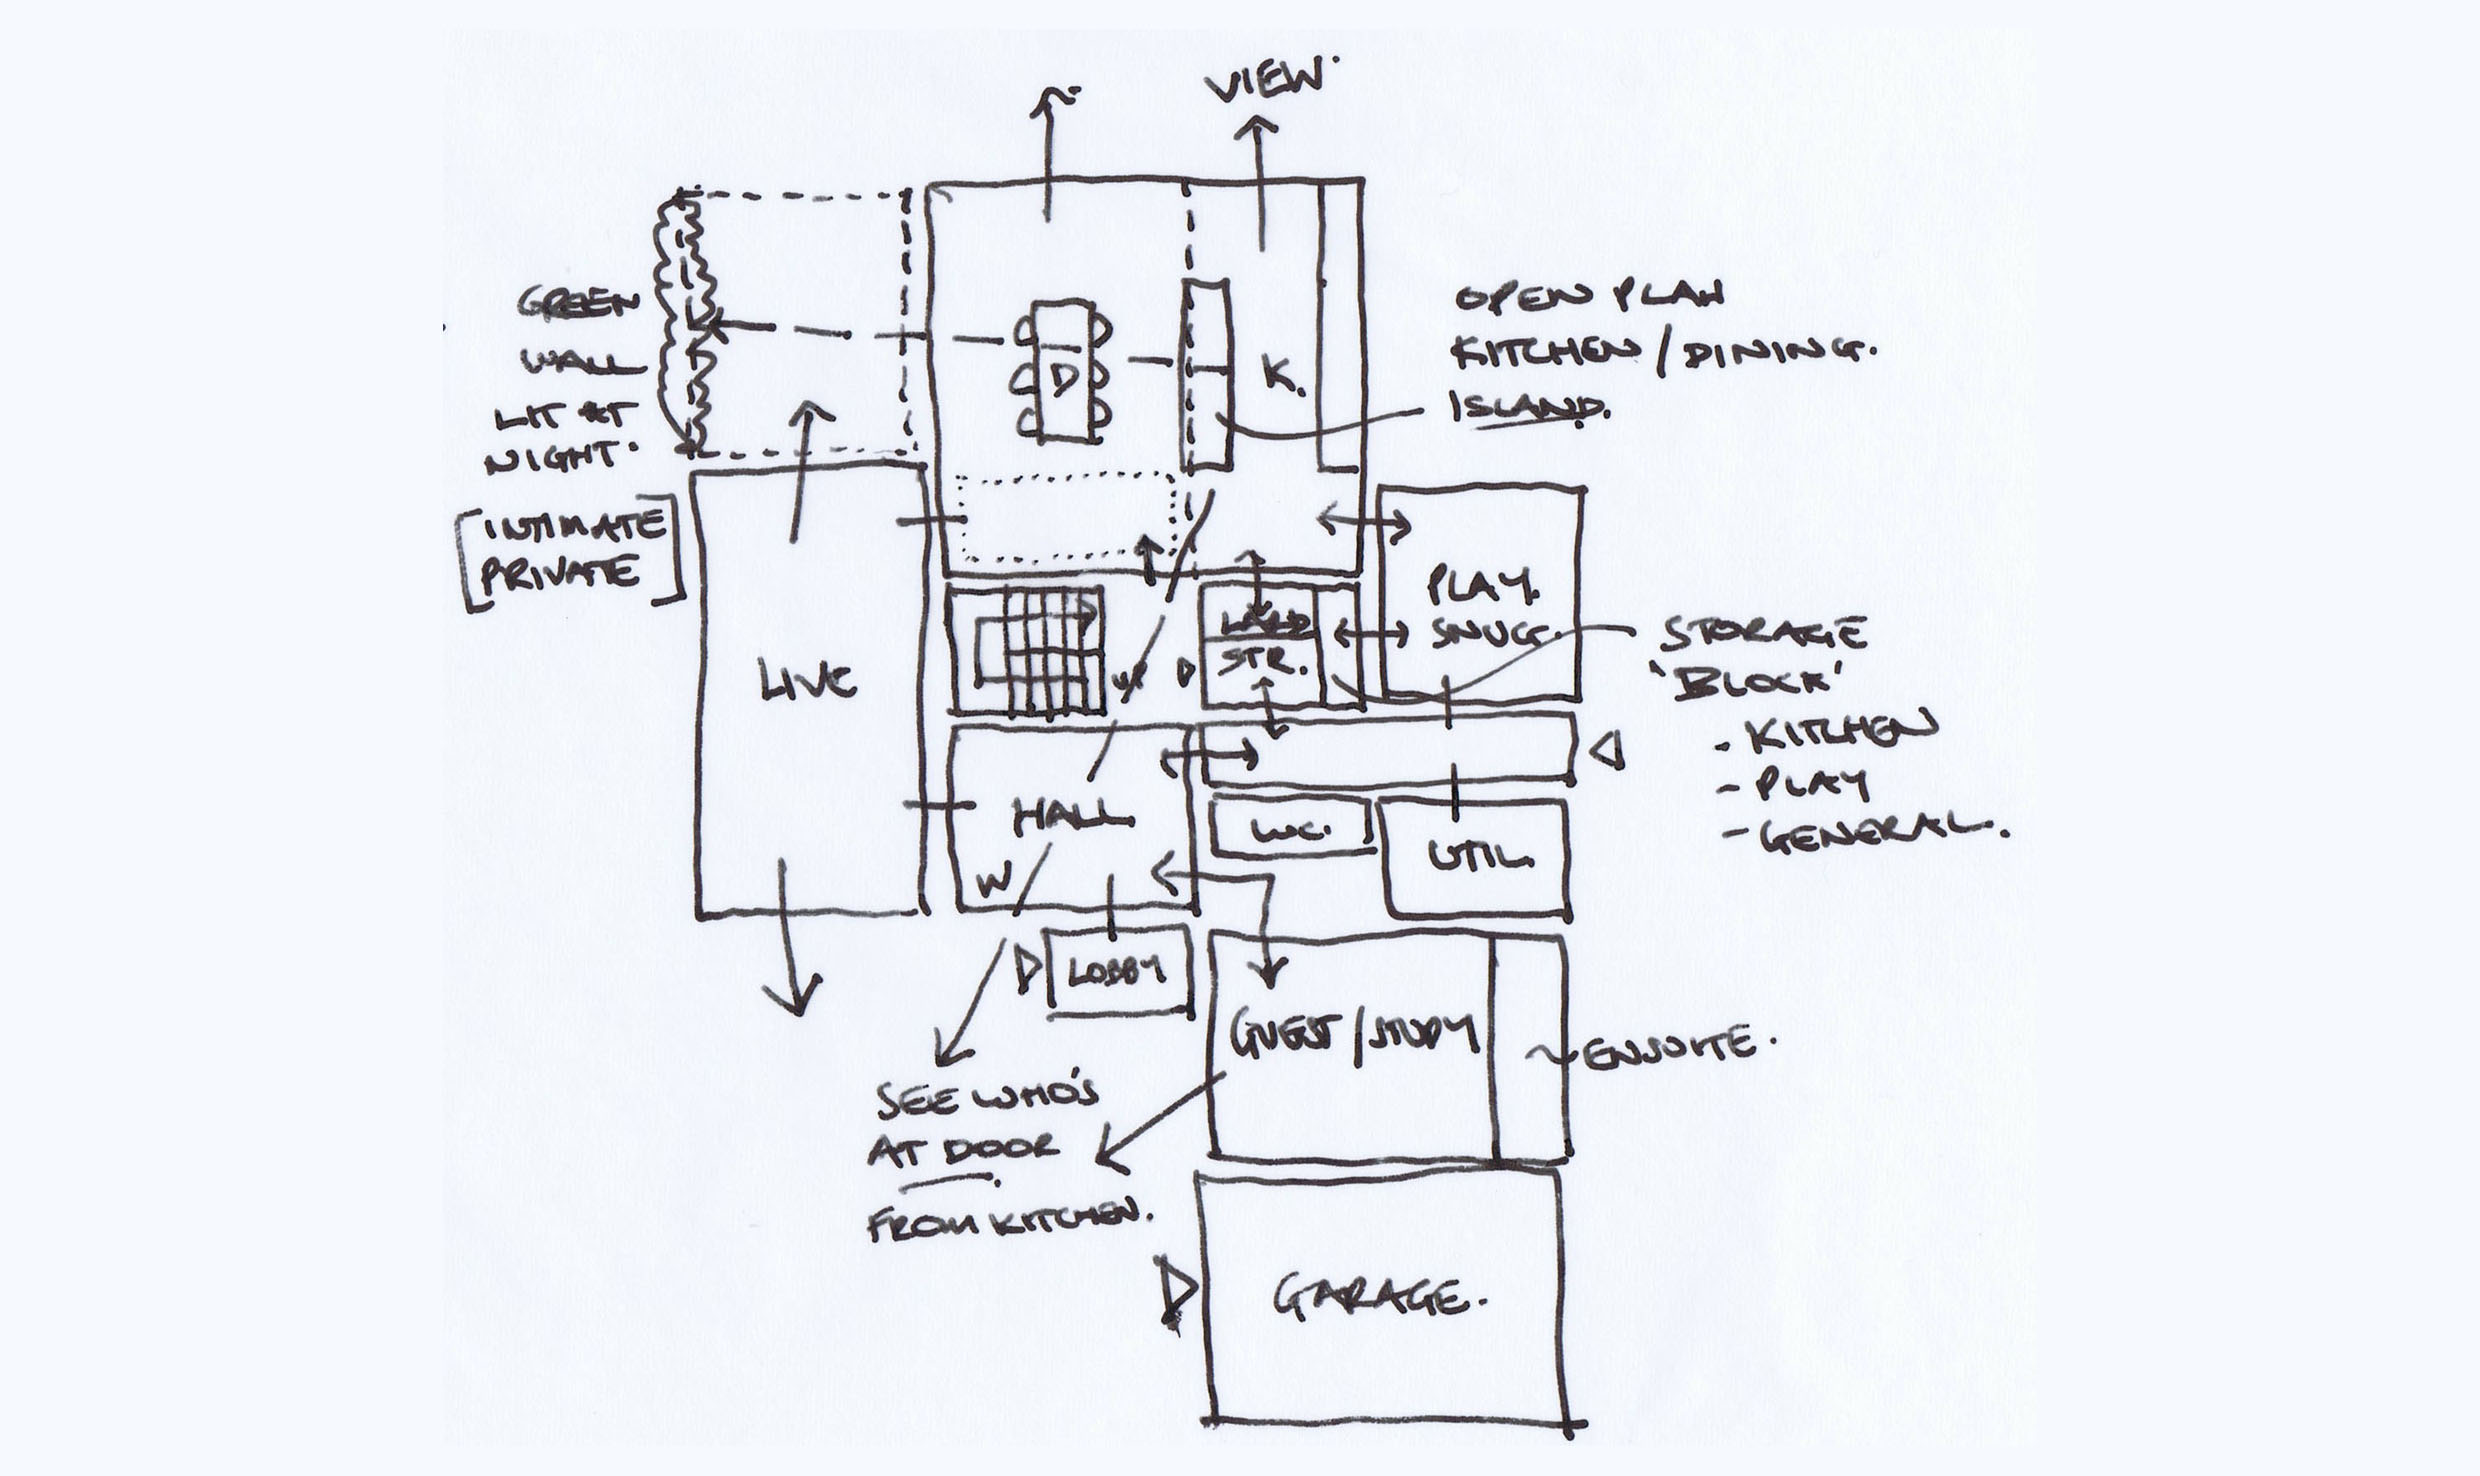 VIEW.
GREEN
WALL
LIT AT
NIGHT.
[INTIMATE
PRIVATE]
OPEN PLAN
KITCHEN/DINING.
ISLAND.
D
K.
PLAY.
SNUG.
LARD
STR.
UP
STORAGE
'BLOCK'
- KITCHEN
- PLAY
- GENERAL.
LIVE
HALL.
W
W.C.
UTIL.
LOBBY
GUEST/STUDY
ENSUITE.
SEE WHO'S
AT DOOR
FROM KITCHEN.
GARAGE.